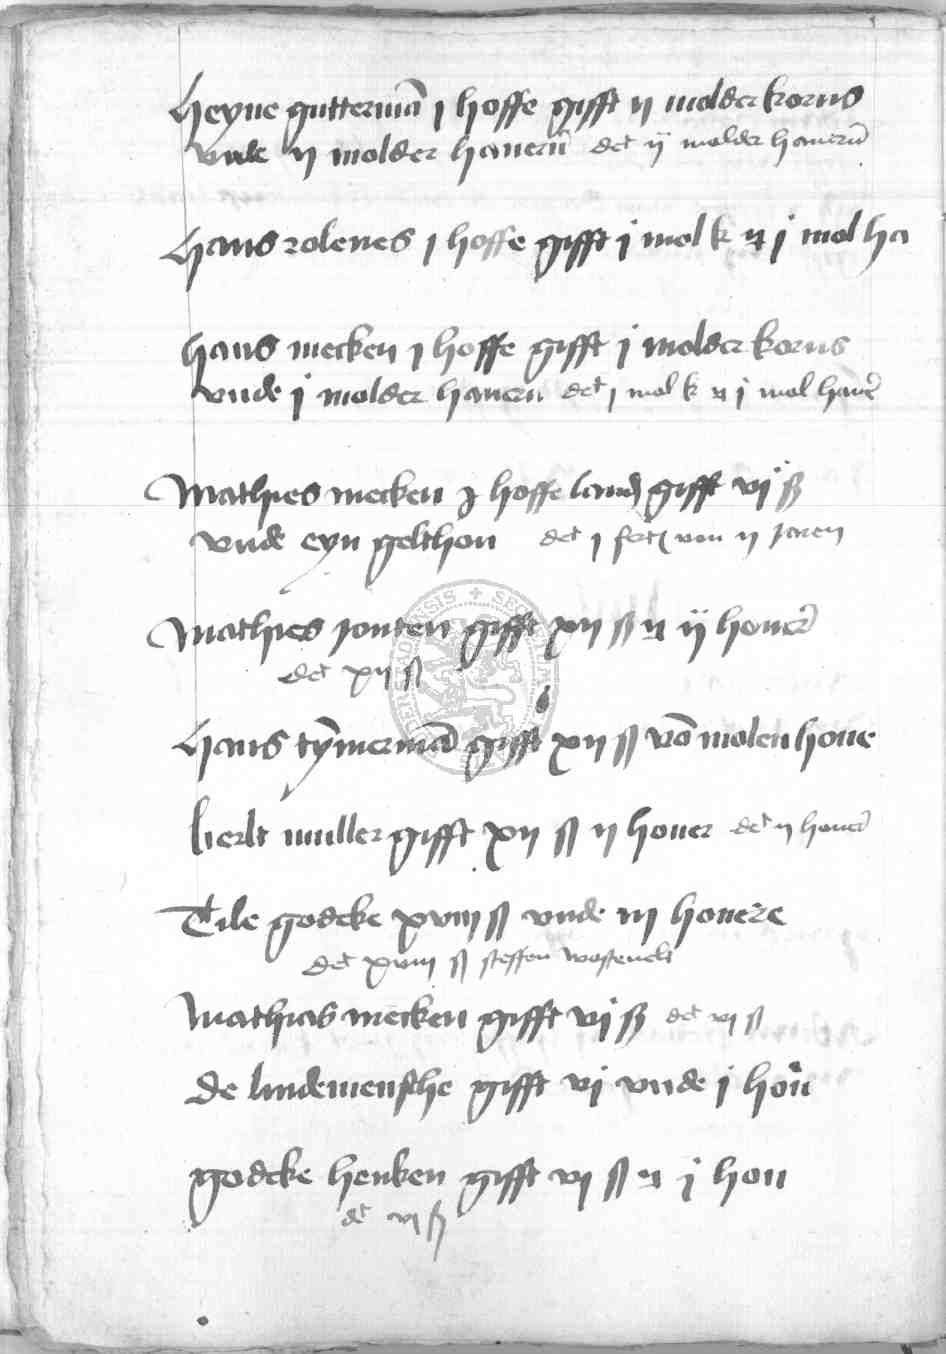 Heyne gutterman j hoffe gifft ij molder korns
vnde ij molder hauern det ij molder hauern
Hans rolenes j hoffe gifft j mol k vn j mol ha
hans mecken j hoffe gifft j molder korns
vnde j molder hauern det j mol k vn j mol hauer
Mathies mecken hoffe landes gifft vj ß
vnde eyn gelthon det j fert von ij jaren
Mathies jonten gifft xij ß vn ij honer
det xij ß
Hans tymerman gifft xij ß von molenhoue
berlt muller gifft xij ß ij honer det ij honer
Tile godeke xviij ß vnde iij honere
det xviij ß steffen
Mathias mecken gifft vj ß det vj ß
De lindemensche gifft vj vnde j hon
godeke henken gifft vj ß vn j hon
det vj ß